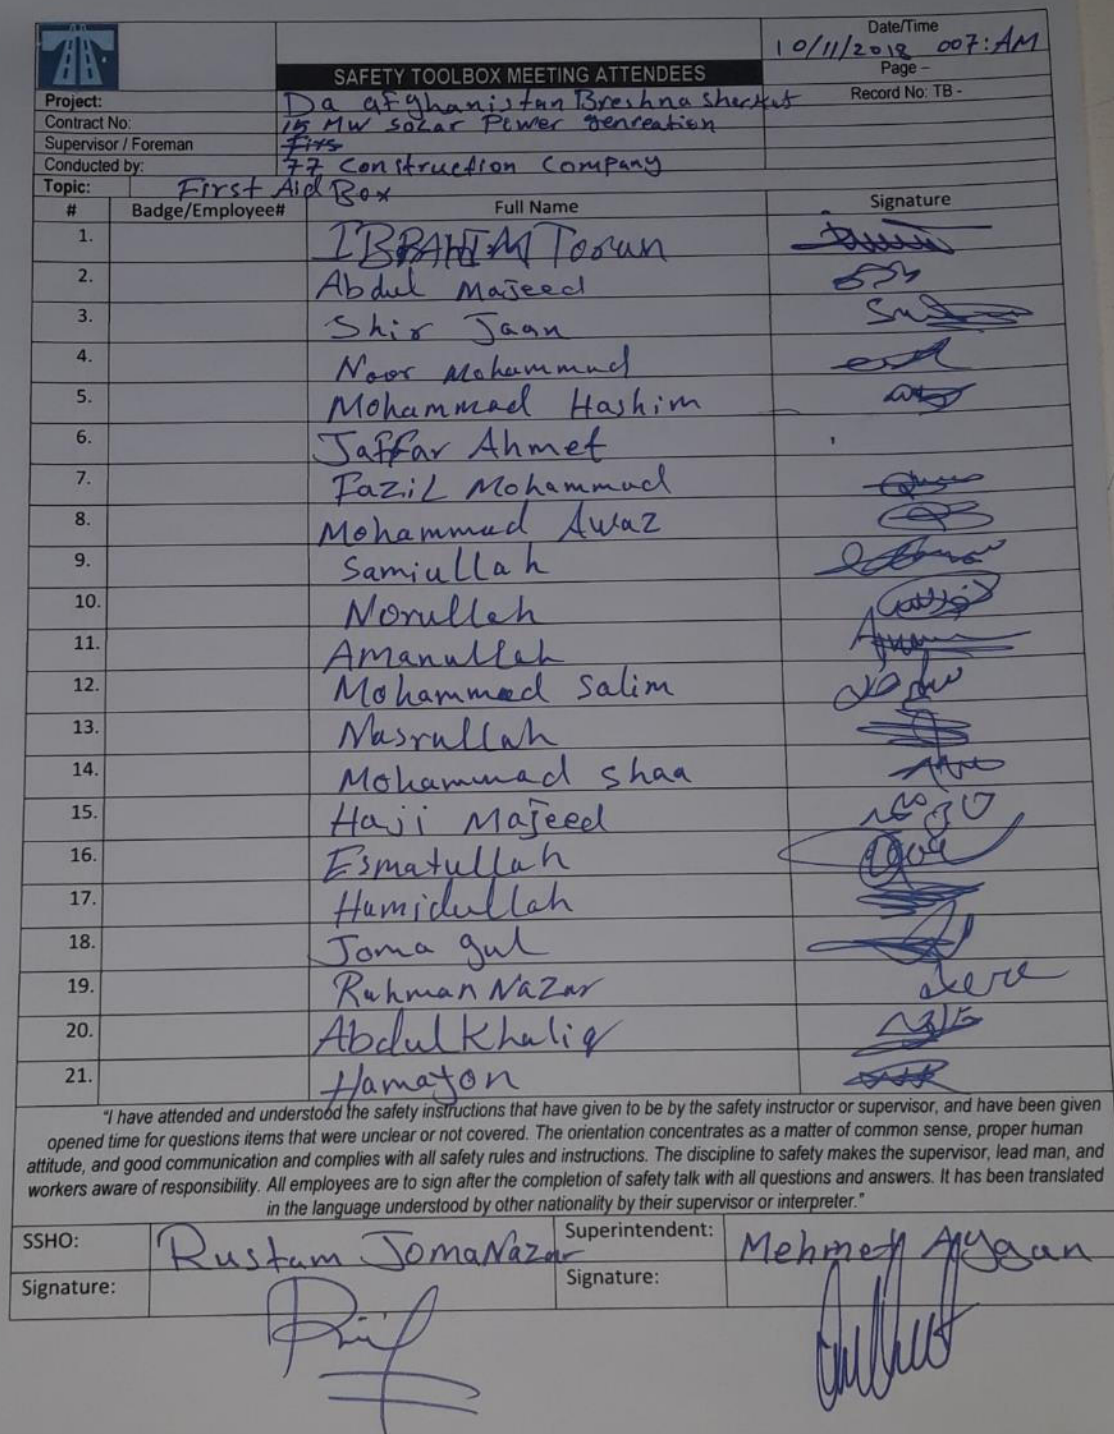 Date/Time
10/11/2018 007:AM
SAFETY TOOLBOX MEETING ATTENDEES
Page –
Project: Da afghanistan Breshna sherkat
Record No: TB -
Contract No: 15 MW solar Power Genreation
Supervisor / Foreman
Conducted by: 77 Construction Company
Topic: First Aid Box
# Badge/Employee# Full Name Signature
1. IBRAHIM Tosun
2. Abdul Majeed
3. Shir Jaan
4. Noor Mohammad
5. Mohammad Hashim
6. Jaffar Ahmet
7. Fazil Mohammad
8. Mohammad Awaz
9. Samiullah
10. Norullah
11. Amanullah
12. Mohammad Salim
13. Nasrullah
14. Mohammad shaa
15. Haji Majeed
16. Esmatullah
17. Hamidullah
18. Joma gul
19. Rahman Nazar
20. Abdul Khaliq
21. Hamajon
"I have attended and understood the safety instructions that have given to be by the safety instructor or supervisor, and have been given
opened time for questions items that were unclear or not covered. The orientation concentrates as a matter of common sense, proper human
attitude, and good communication and complies with all safety rules and instructions. The discipline to safety makes the supervisor, lead man, and
workers aware of responsibility. All employees are to sign after the completion of safety talk with all questions and answers. It has been translated
in the language understood by other nationality by their supervisor or interpreter."
SSHO: Rustam JomaNazar Superintendent: Mehmet Aygan
Signature: Signature: